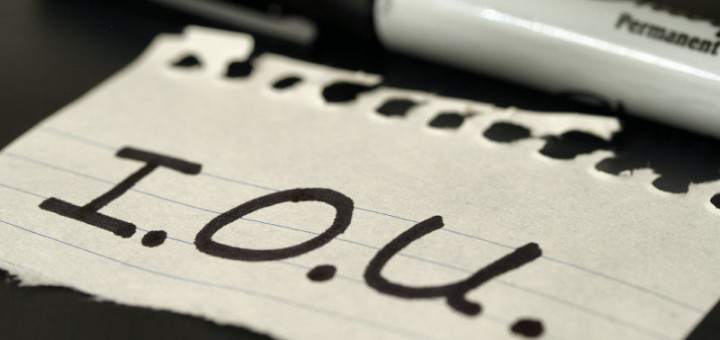 Permanent
I.O.U.